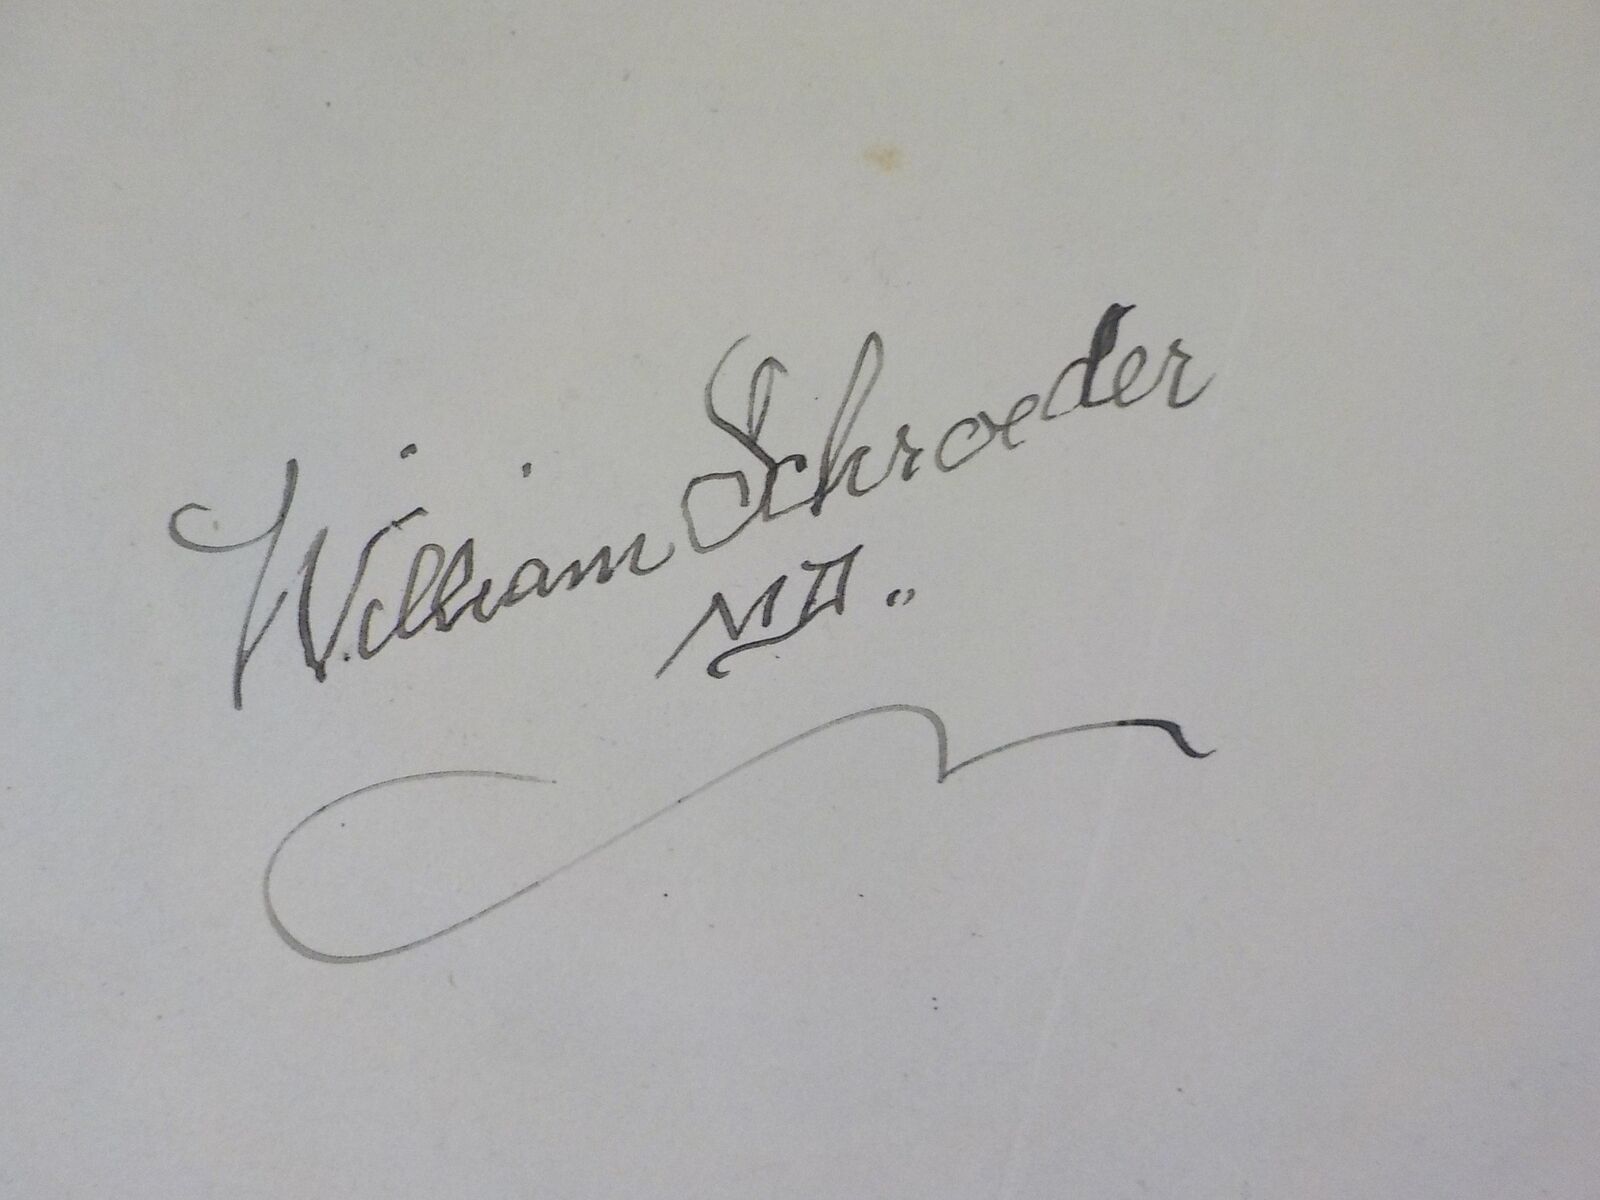 William Schroeder
MD..